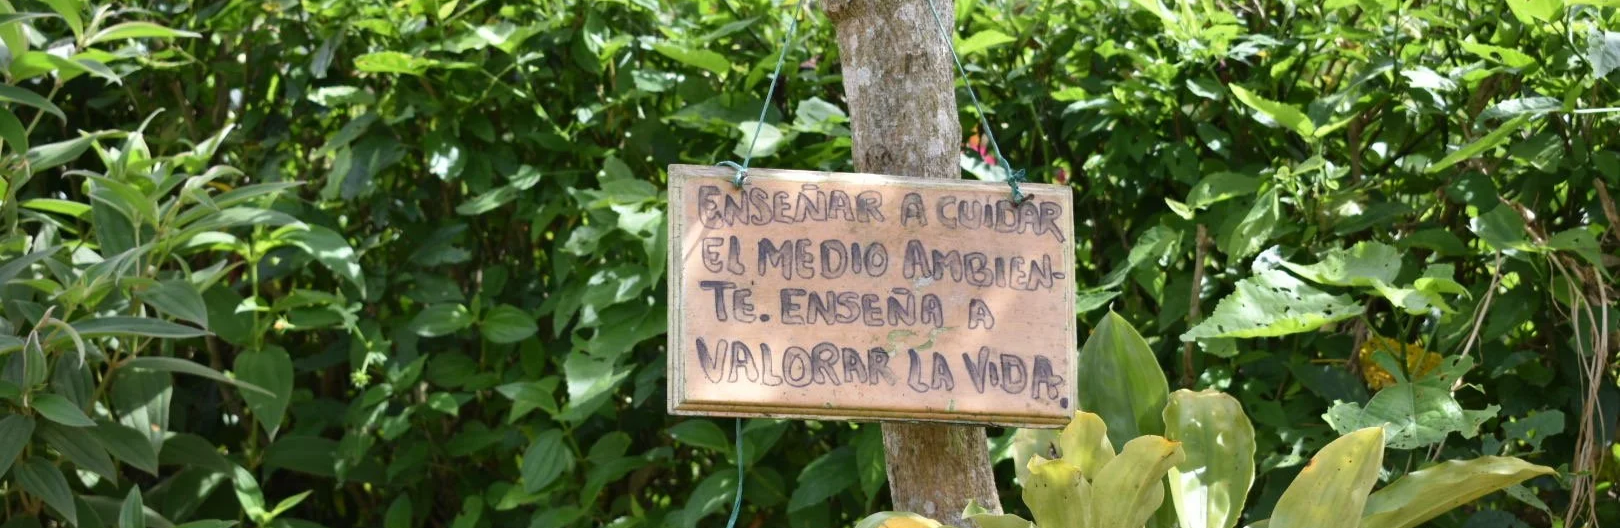 ENSEÑAR A CUIDAR
EL MEDIO AMBIEN-
TE. ENSEÑA A
VALORAR LA VIDA.